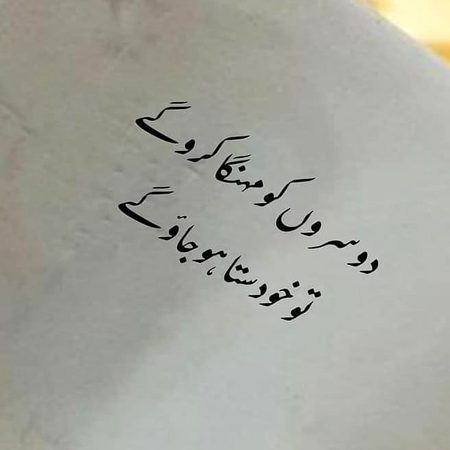 دوسروں کو مہنگا کرو گے
تو خود سستا ہو جاؤ گے